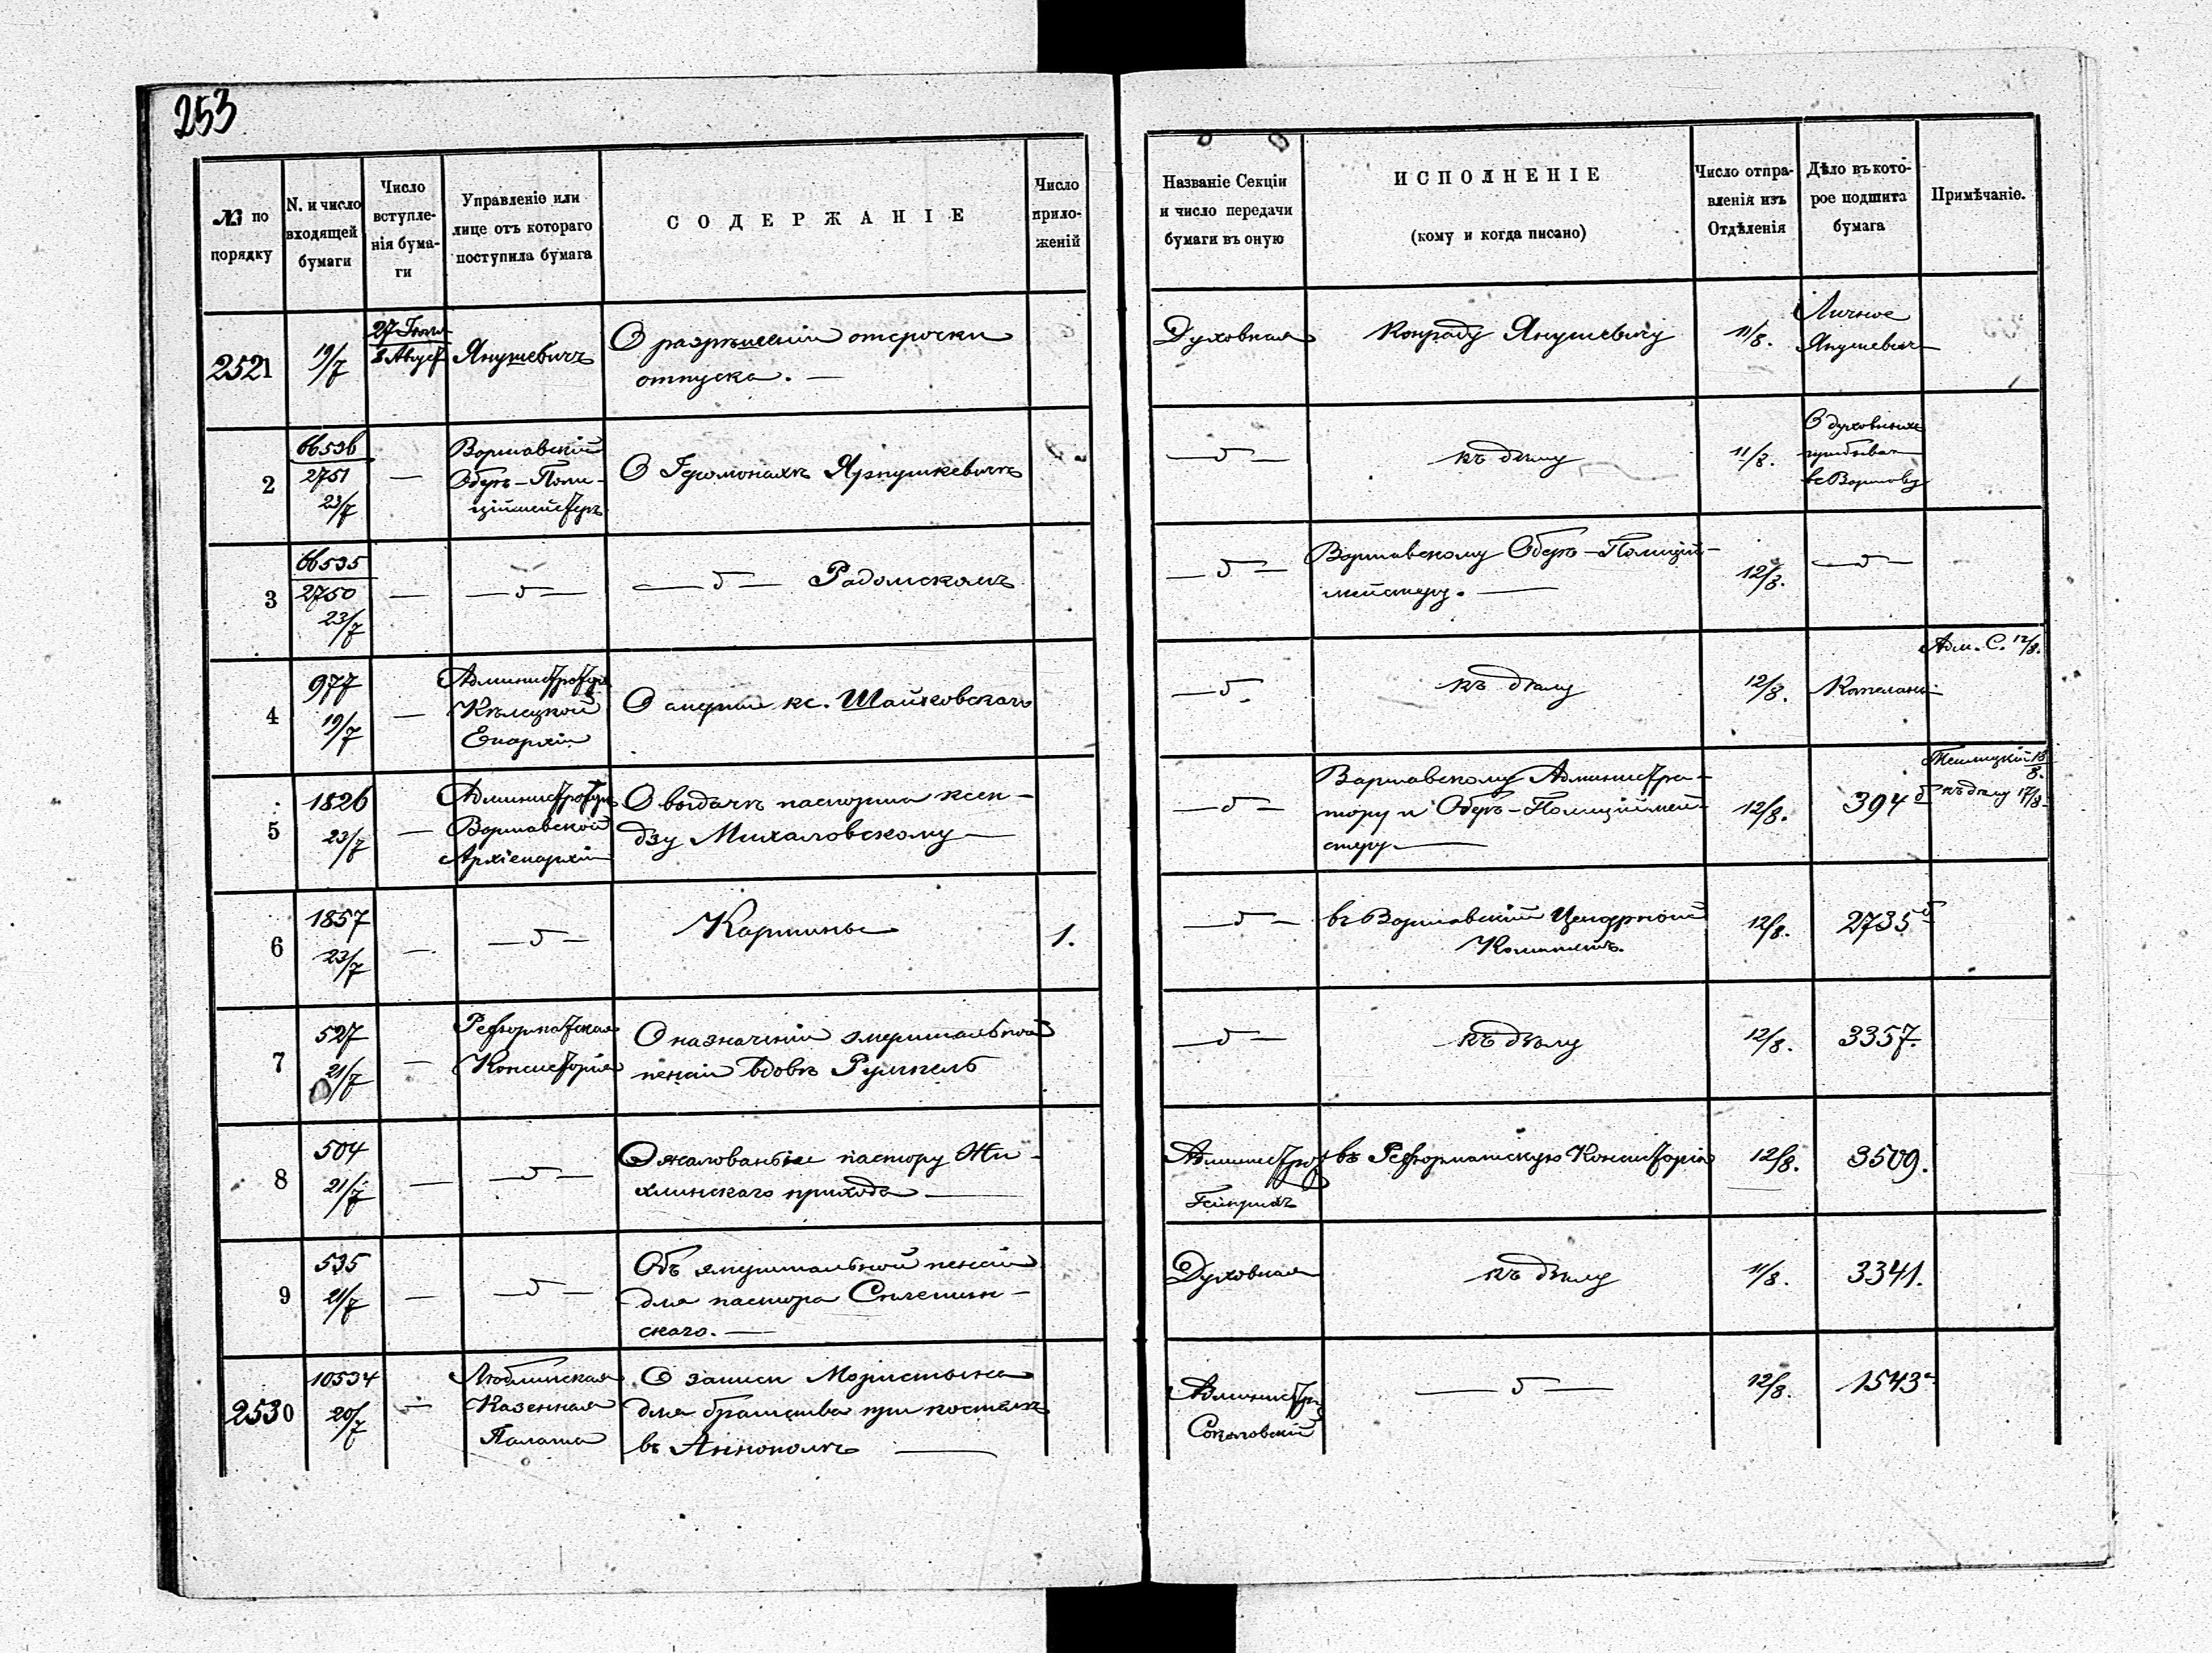 253
№ по порядку
N. и число входящей бумаги
Число вступле- нія бума- ги
Управленіе или лице отъ котораго поступила бумага
СОДЕРЖАНІЕ
Число прило- женій
Названіе Секціи и число передачи бумаги въ оную
ИСПОЛНЕНІЕ (кому и когда писано)
Число отпра- вленія изъ Отдѣленія
Дѣло въ кото- рое подшита бумага
Примѣчаніе.
2521
19/7
27 Іюля
8 Август
Янушевичъ
О разрѣшеніи отсрочки
отпуска. —
Духовная
Конраду Янушевичу
11/8.
Личное
Янушевич
2
66536
2751
23/7
—
Варшавскій
Оберъ-Поли-
ціймейстеръ
О Іеромонахѣ Ярнушкевичѣ
— " —
къ дѣлу
11/8.
О духовныхъ
въ Варшаву
3
66535
2750
23/7
—
— " —
— " — Радомскомъ
— " —
Варшавскому Оберъ-Полицій-
мейстеру. —
12/8.
— " —
4
977
19/7
—
Администраторъ
Кѣлецкой
Епархіи
О смерти кс. Шайковскаго
— " —
къ дѣлу
12/8.
Капеланы
Адм. С. 12/8.
5
1826
23/7
—
Администраторъ
Варшавской
Архіепархіи
О выдачѣ паспорта ксен-
дзу Михаловскому —
— " —
Варшавскому Администра-
тору и Оберъ-Полиціймей-
стеру —
12/8.
394 б
18/8.
къ дѣлу 17/8
6
1857
23/7
—
— " —
Картины
1.
— " —
въ Варшавскій Цензурный
Комитетъ.
12/8.
2735 б
7
527
21/7
—
Реформатская
Консисторія
О назначеніи эмеритальной
пенсіи вдовѣ Руммель
— " —
къ дѣлу
12/8.
3357.
8
504
21/7
—
— " —
О жалованьи пастору Жи-
хлинскаго прихода —
Администрат
Гейнрихъ
въ Реформатскую Консисторію
12/8.
3509.
9
535
21/7
—
— " —
Объ эмеритальной пенсіи
для пастора
скаго. —
Духовная
къ дѣлу
11/8.
3341.
2530
10534
20/7
—
Люблинская
Казенная
Палата
О записи
для братства при костелѣ
въ Аннополѣ —
Администр
Соколовскій
— " —
12/8.
1543 а